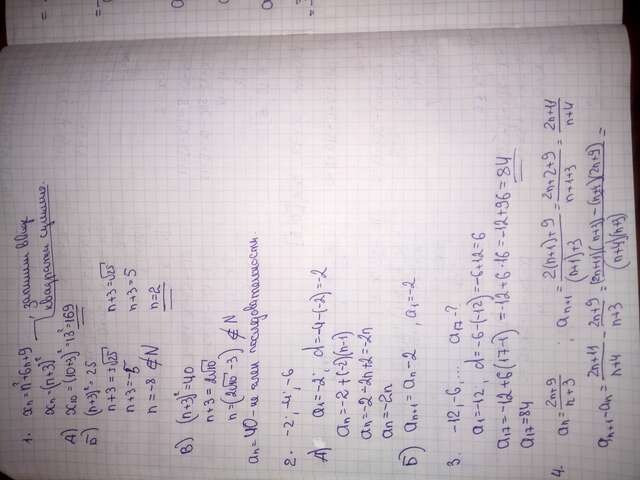 1. xₙ = n²+6n+9 , запишем в виде
xₙ = (n+3)² квадрата суммы.
А) x₁₀ = (10+3)² = 13² = 169
Б) (n+3)² = 25
n+3 = ±√25 n+3 = √25
n+3 = -5 n+3 = 5
n = -8 ∉ N n = 2
В) (n+3)² = 40
n+3 = 2√10
n = (2√10 -3) ∉ N
aₙ = 40 - не член последовательности.
2. -2; -4; -6
А) a₁ = -2; d = -4-(-2) = -2
aₙ = -2+(-2)(n-1)
aₙ = -2-2n+2 = -2n
aₙ = -2n
Б) aₙ₊₁ = aₙ -2 , a₁ = -2
3. -12, -6, ... a₁₇ - ?
a₁ = -12, d = -6-(-12) = -6+12 = 6
a₁₇ = -12+6(17-1) = -12+6·16 = -12+96 = 84
a₁₇ = 84
4. aₙ = (2n+9)/(n+3) ; aₙ₊₁ = (2(n+1)+9)/((n+1)+3) = (2n+2+9)/(n+1+3) = (2n+11)/(n+4)
aₙ₊₁ - aₙ = (2n+11)/(n+4) - (2n+9)/(n+3) = ((2n+11)(n+3) - (n+4)(2n+9))/((n+4)(n+3)) =